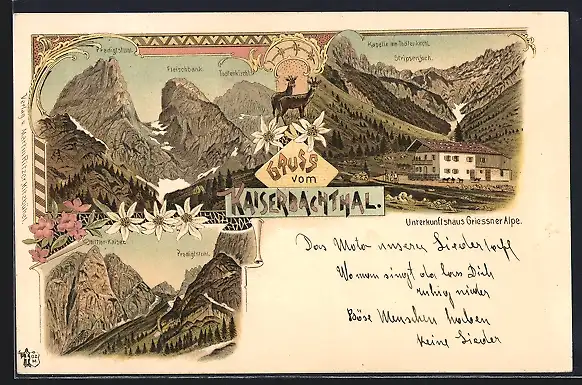 Predigtstuhl.
Fleischbank.
Todtenkirchl.
Kapelle am Todtenkirchl.
Stripsenjoch.
GRUSS
vom
KAISERBACHTHAL.
Unterkunftshaus Griessner Alpe.
Predigtstuhl.
Das Motto unserer Liedertafel
Wo man singt da lass Dich
ruhig nieder
Böse Menschen haben
keine Lieder